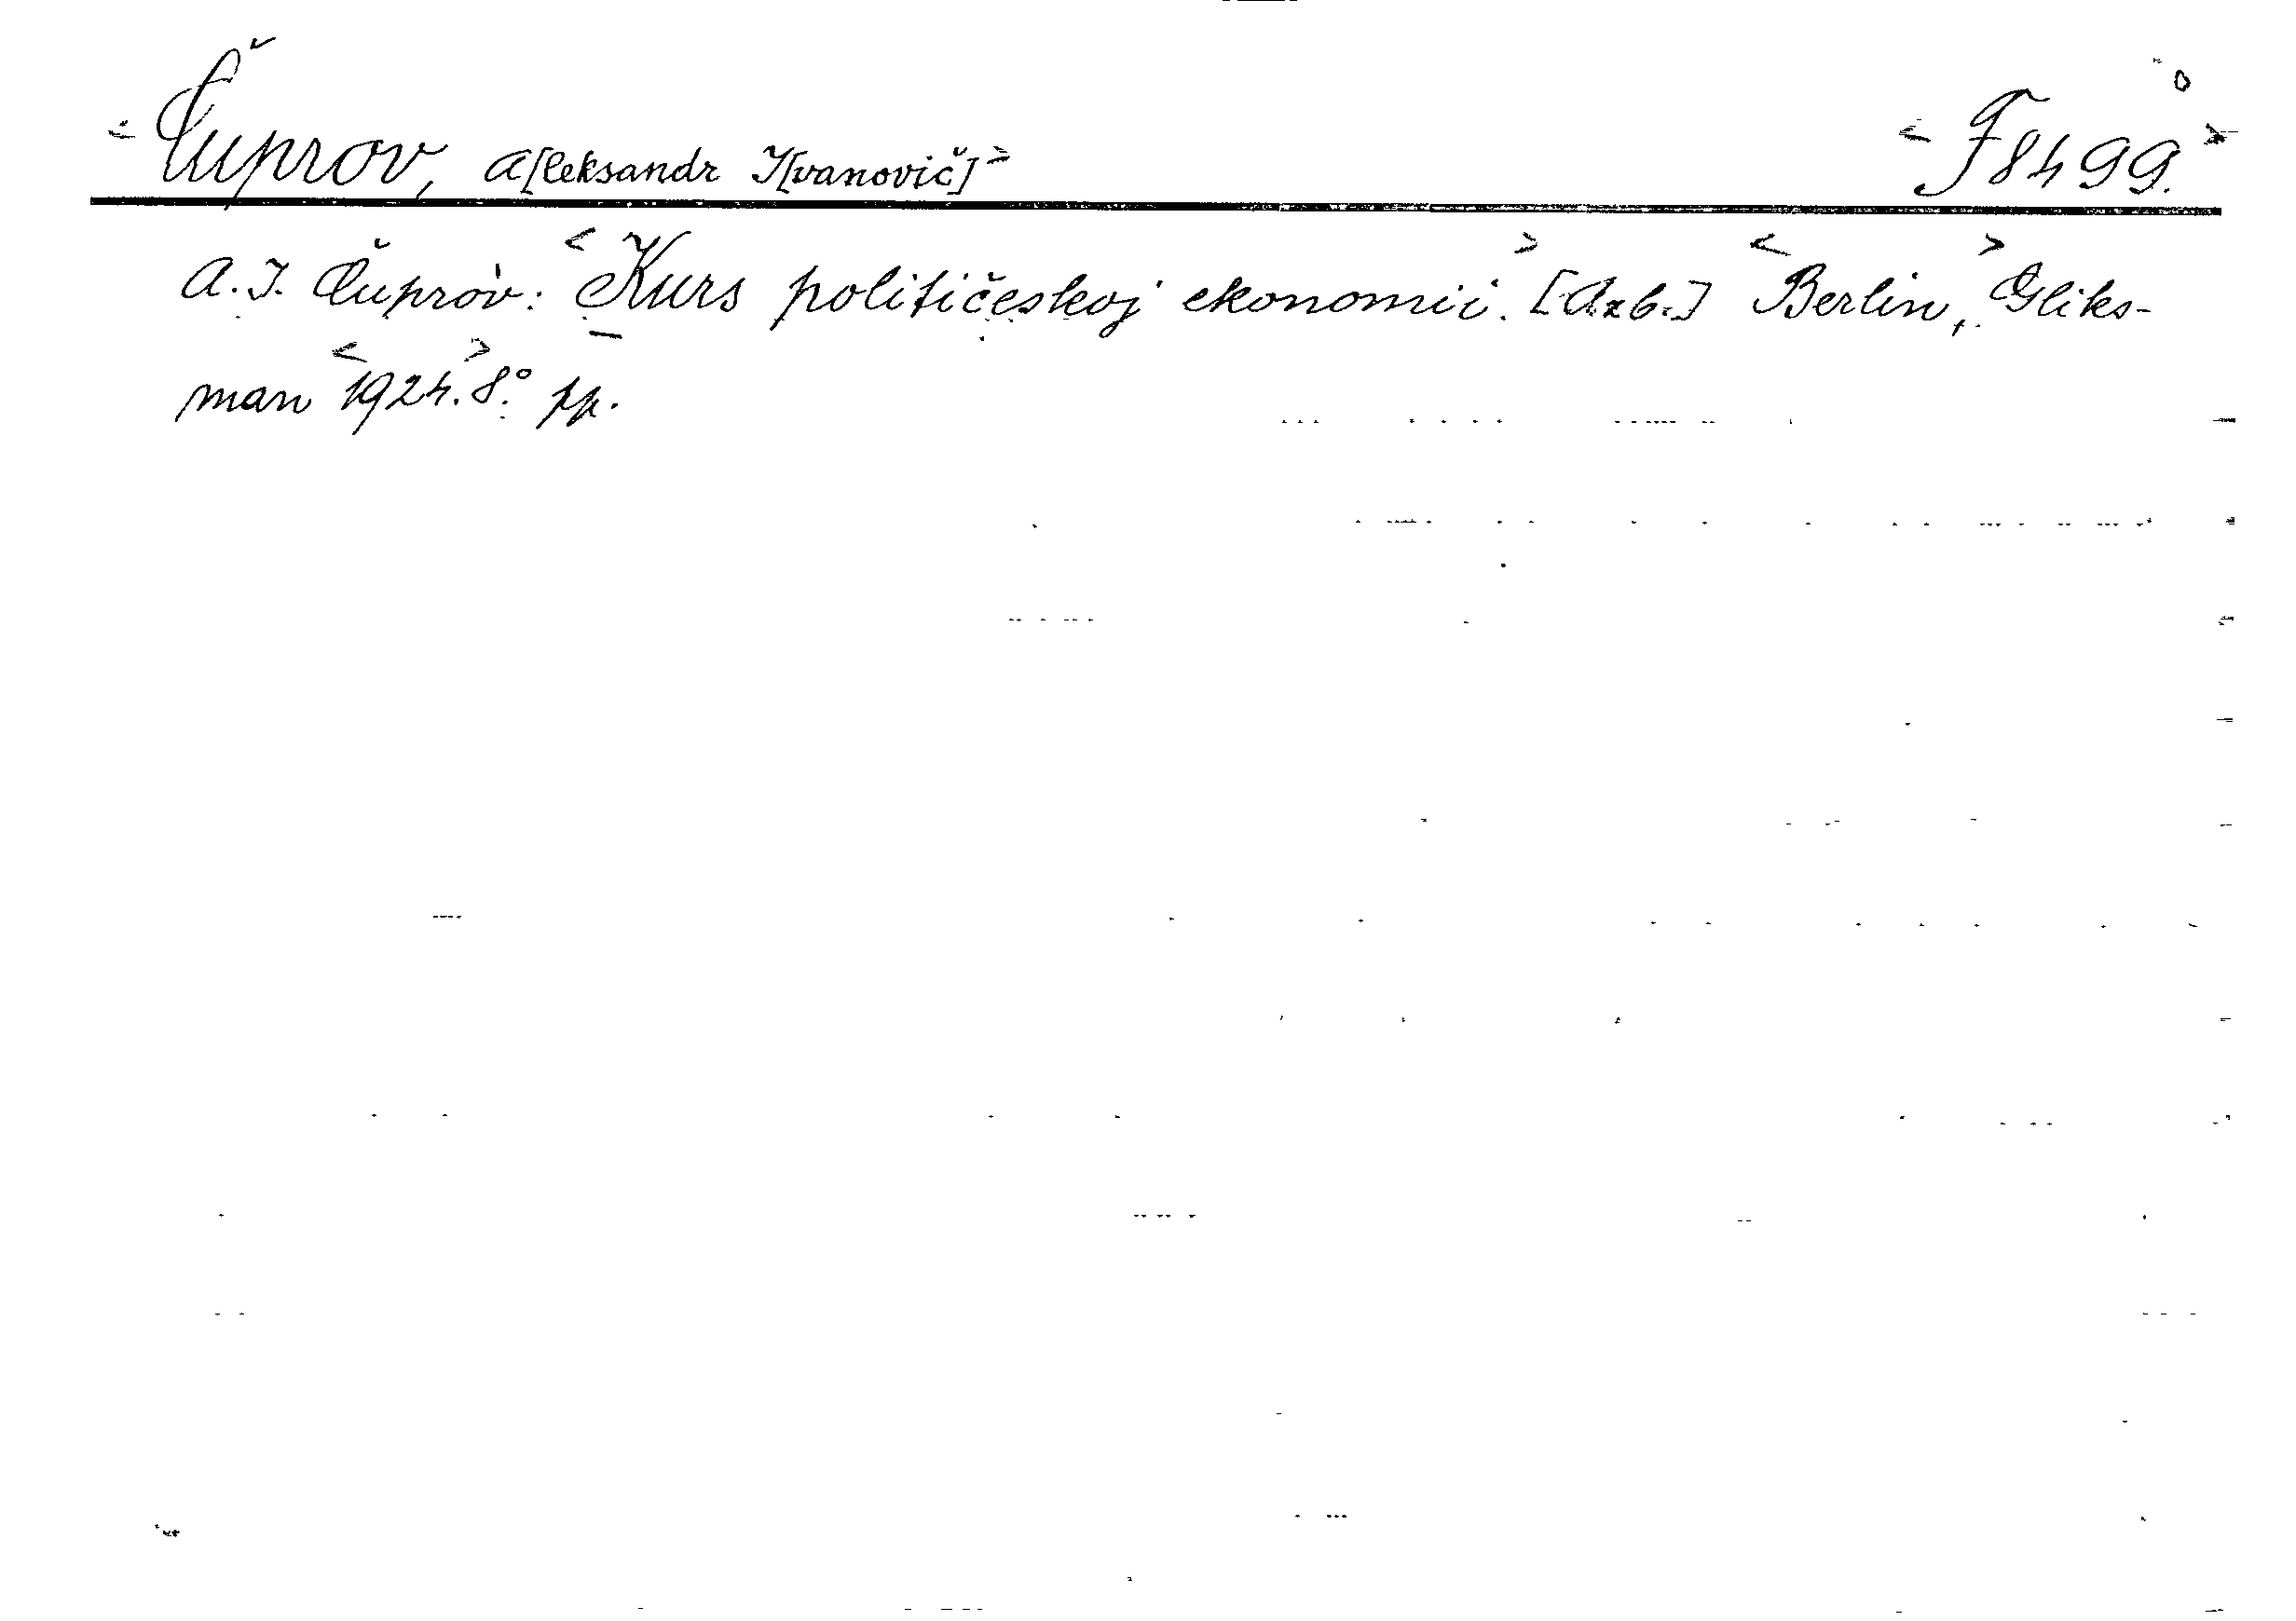 <Čuprov, A[leksandr I[vanovič]> <F8499.>
A. I. Čuprov: <Kurs političeskoj ekonomii.> [Azb.] <Berlin,> Gliks-
man <1924.> 8.° pp.